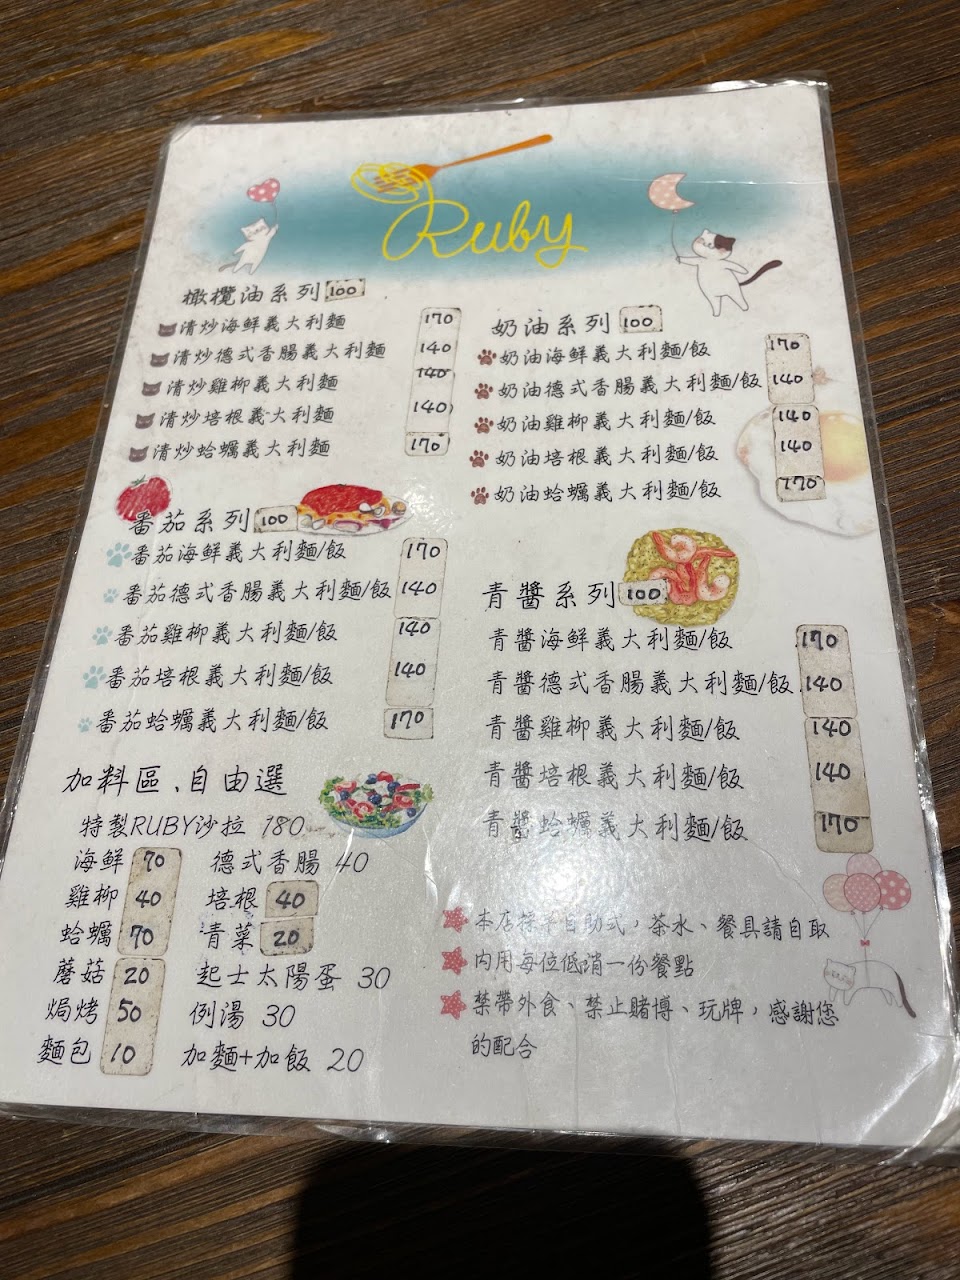 Ruby
橄欖油系列 100
清炒海鮮義大利麵 170
清炒德式香腸義大利麵 140
清炒雞柳義大利麵 140
清炒培根義大利麵 140
清炒蛤蠣義大利麵 170
番茄系列 100
番茄海鮮義大利麵/飯 170
番茄德式香腸義大利麵/飯 140
番茄雞柳義大利麵/飯 140
番茄培根義大利麵/飯 140
番茄蛤蠣義大利麵/飯 170
加料區、自由選
特製RUBY沙拉 180
海鮮 70 德式香腸 40
雞柳 40 培根 40
蛤蠣 70 青菜 20
蘑菇 20 起士太陽蛋 30
焗烤 50 例湯 30
麵包 10 加麵+加飯 20
奶油系列 100
奶油海鮮義大利麵/飯 170
奶油德式香腸義大利麵/飯 140
奶油雞柳義大利麵/飯 140
奶油培根義大利麵/飯 140
奶油蛤蠣義大利麵/飯 170
青醬系列 100
青醬海鮮義大利麵/飯 170
青醬德式香腸義大利麵/飯 140
青醬雞柳義大利麵/飯 140
青醬培根義大利麵/飯 140
青醬蛤蠣義大利麵/飯 170
本店採半自助式，茶水、餐具請自取
內用每位低消一份餐點
禁帶外食、禁止賭博、玩牌，感謝您
的配合